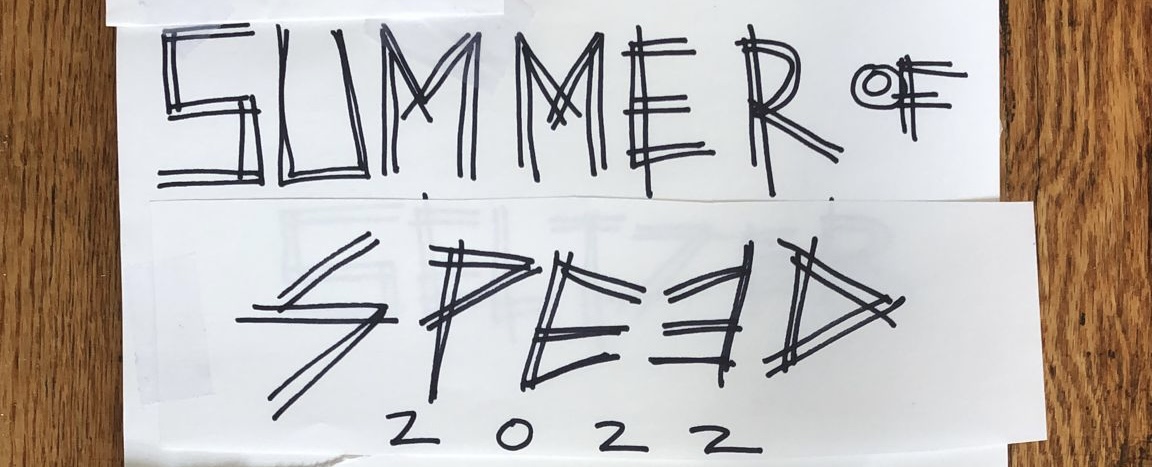 SUMMER OF
SPEED
2022